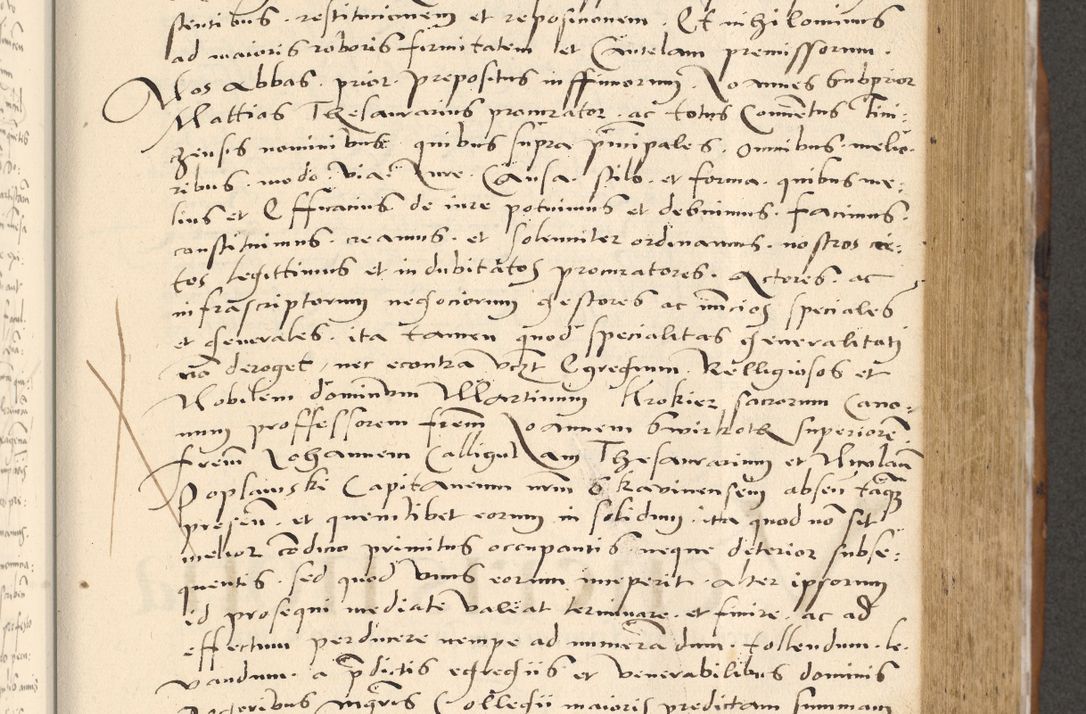 stentibus. restitucionem et reposicionem. Et nihilominus
ad maioris roboris firmitatem et Cautelam premissorum.
Nos Abbas. prior. prepositus infirmorum, Joannes Subprior
Mattias Thesaurarius procurator. ac totus Conventus Tini:
zensis nominibus quibus supra principales. Omnibus melio:
ribus. modo. via. Iure. Causa. stilo. et forma. quibus me:
lius et Efficatius de iure potuimus et debuimus. facimus.
constituimus. creamus. et solenniter ordinamus. nostros cer:
tos legittimos et indubitatos procuratores. Actores. ac
infrascriptorum negociorum gestores ac nuncios speciales
et generales. ita tamen quod specialitas generalitati
non deroget, nec econtra vczt Egregium. Relligiosos et
Nobilem dominum Martinum Krokier sacrorum Cano:
num proffessorem frem Joannem superiore
frem Johannem Calligulam Thesaurarium et Nicolaum
Poplawski Capitaneum nrm absen tamquam
presen. et quemlibet eorum in solidum. ita quod non sit
melior condicio primitus occupantis. neque deterior subse:
quentis. sed quod unus eorum inceperit. alter ipsorum
id prosequi mediate valeat terminare. et finire. ac ad
effectum perducere nempe ad numerandum. tollendum. le:
vandum. a predictis egregiis et venerabilibus dominis
Collegii maioris predictam summam